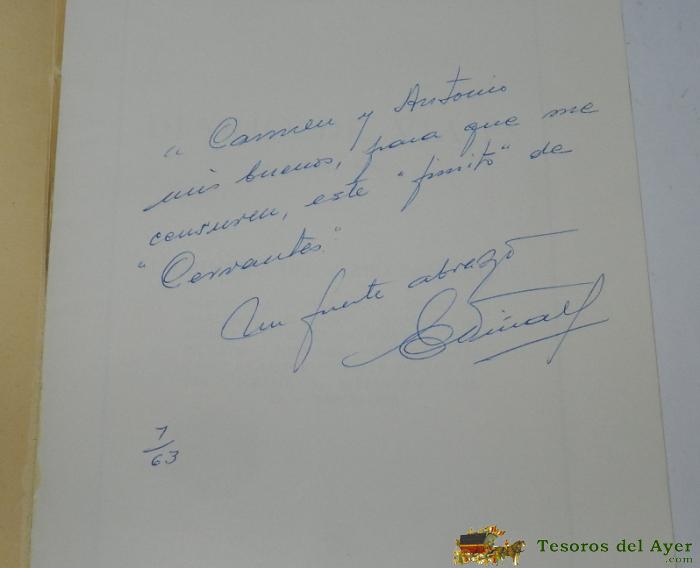 a Carmen y Antonio
mis buenos, para que me
censuren, este "finito" de
"Cervantes"
Un fuerte abrazo
7
63
Tesoros del Ayer
.com